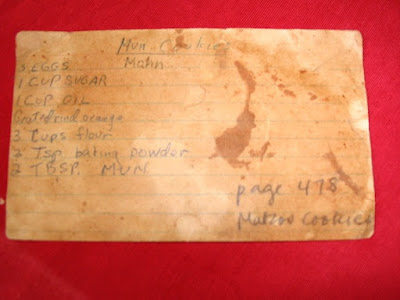 Mun Cookies
Mohn
3 EGGS
1 CUP SUGAR
1 CUP OIL
Grated rind orange
3 Cups flour
2 Tsp baking powder
2 TBSP. MUN
page 478
Cookies